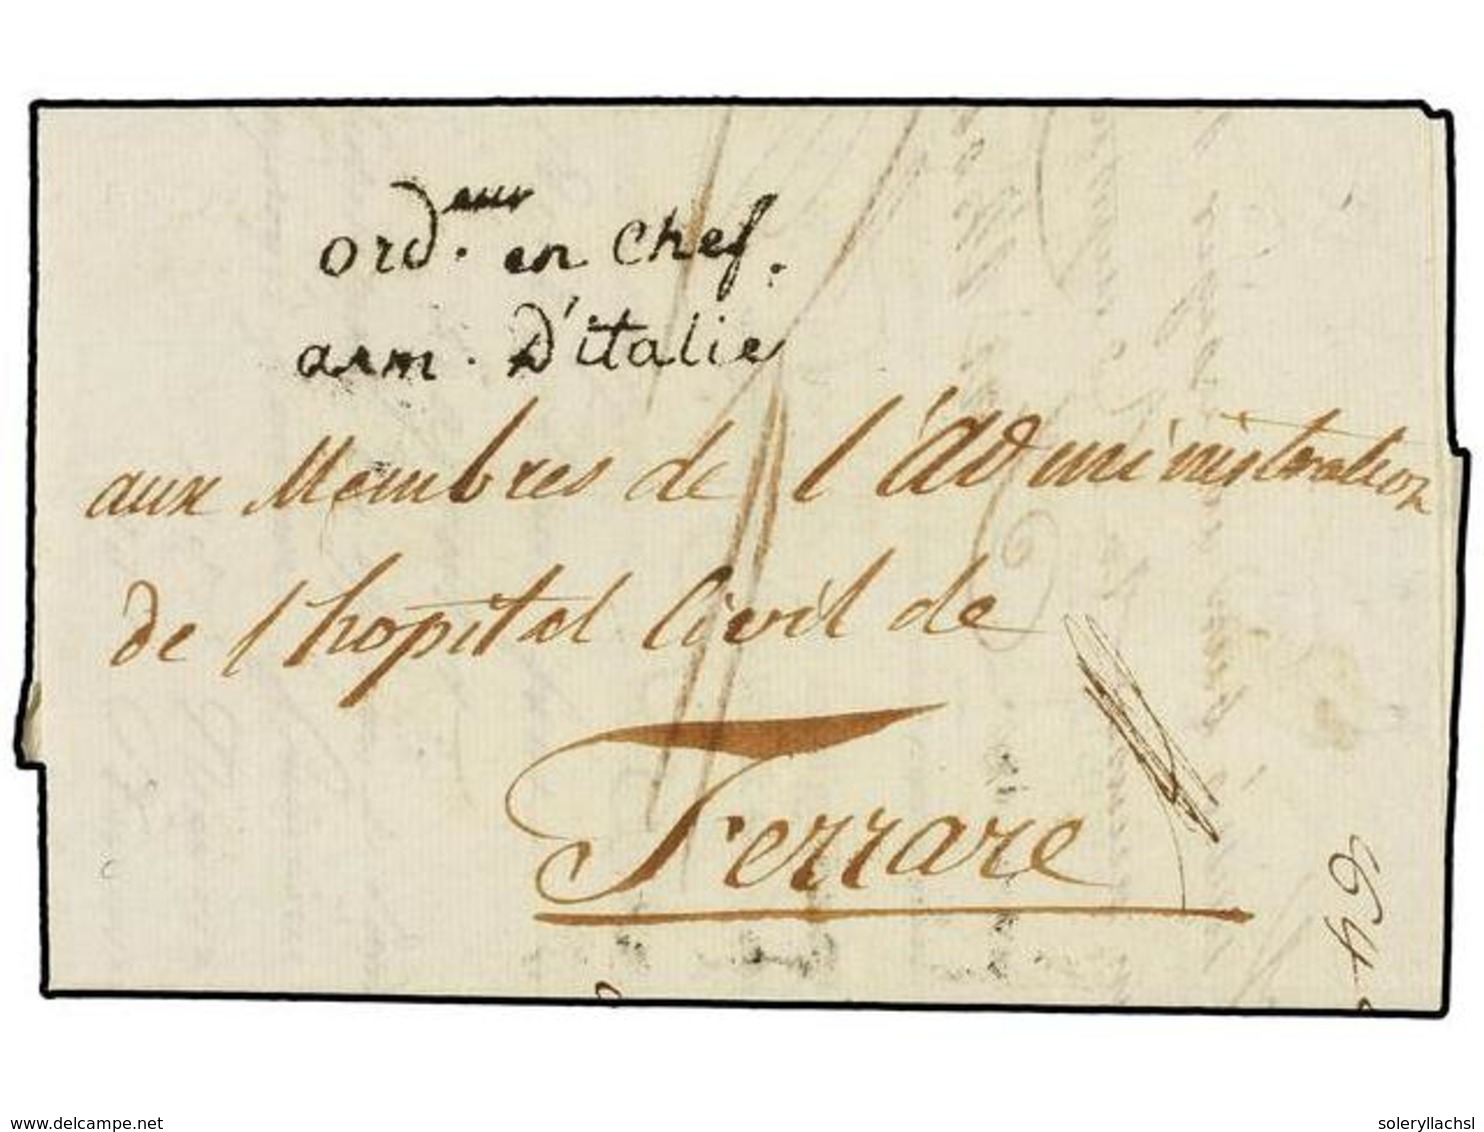 ord.eur en chef.
arm. D'italie
aux Membres de l'administration
de l'hopital Civil de
Ferrare
64
delcampe.net
soleryllachsl